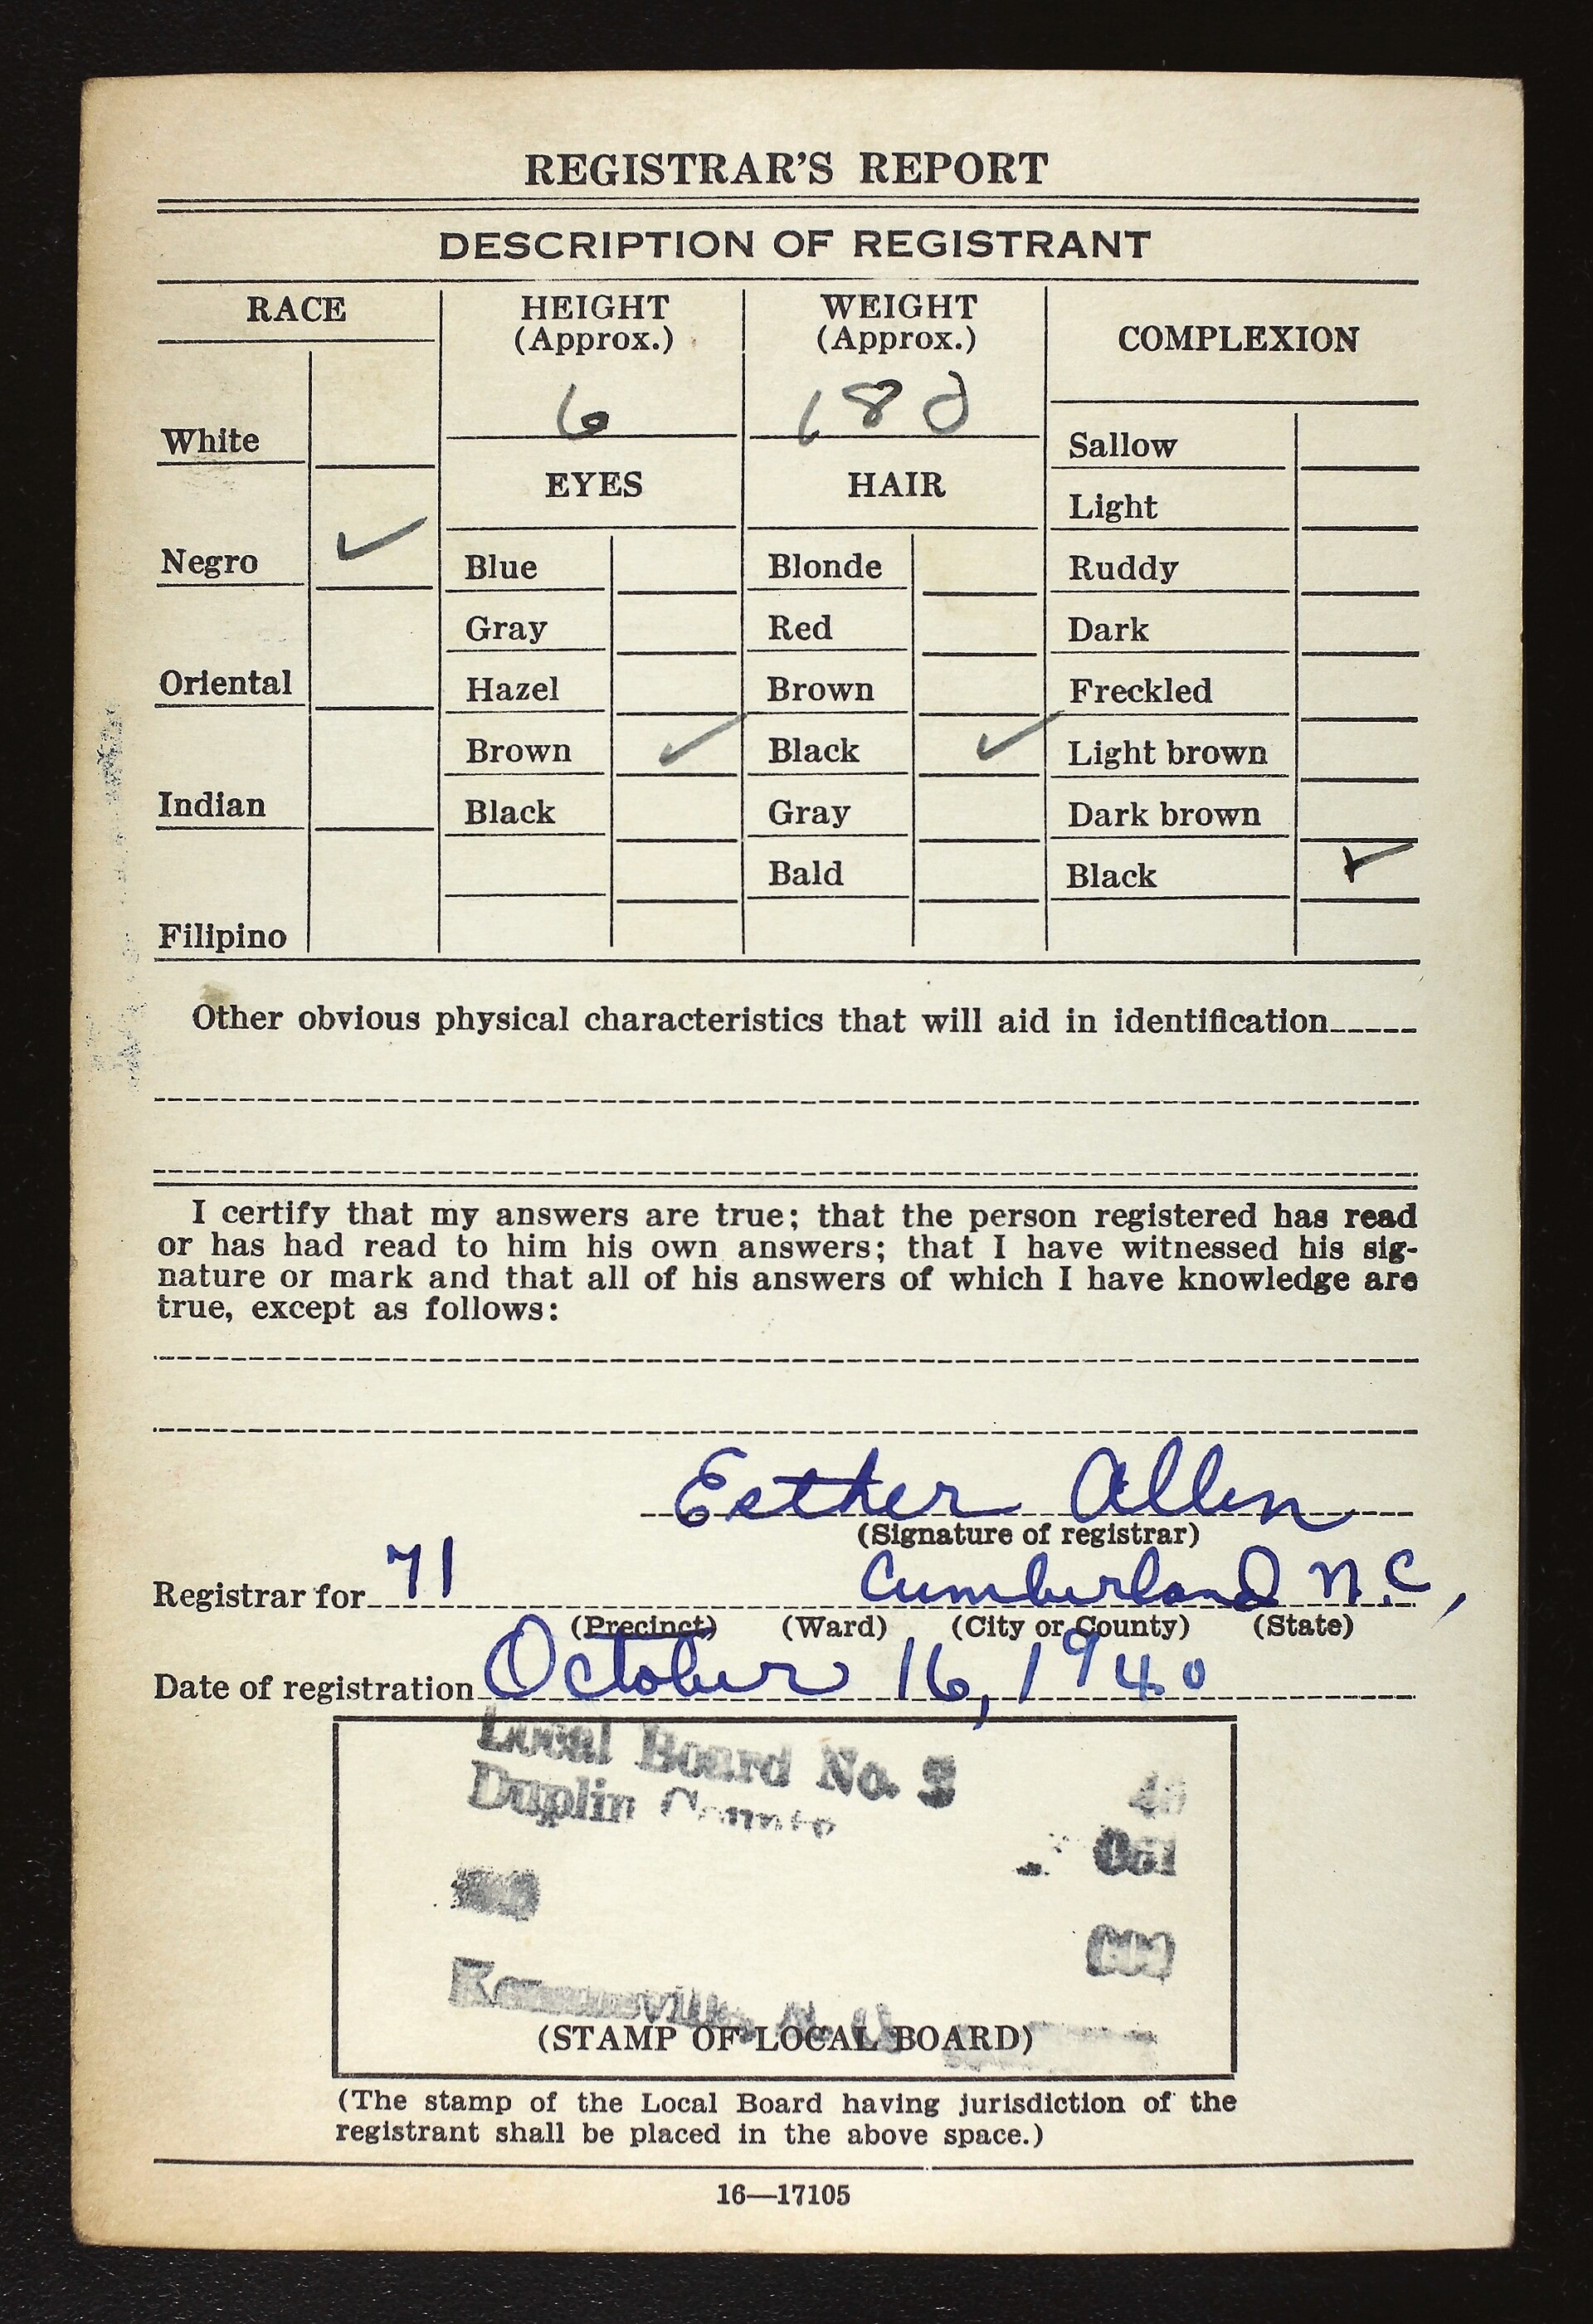 REGISTRAR'S REPORT
DESCRIPTION OF REGISTRANT
RACE HEIGHT (Approx.) WEIGHT (Approx.) COMPLEXION
6 180
White
EYES HAIR
Sallow
Light
Negro ✓
Blue Blonde Ruddy
Gray Red Dark
Oriental
Hazel Brown Freckled
Brown ✓ Black ✓ Light brown
Indian
Black Gray Dark brown
Bald Black ✓
Filipino
Other obvious physical characteristics that will aid in identification
I certify that my answers are true; that the person registered has read
or has had read to him his own answers; that I have witnessed his sig-
nature or mark and that all of his answers of which I have knowledge are
true, except as follows:
Esther Allen
(Signature of registrar)
Registrar for 71 Cumberland N.C,
(Precinct) (Ward) (City or County) (State)
Date of registration October 16, 1940
Local Board No.
Duplin County
(STAMP OF LOCAL BOARD)
(The stamp of the Local Board having jurisdiction of the
registrant shall be placed in the above space.)
16—17105